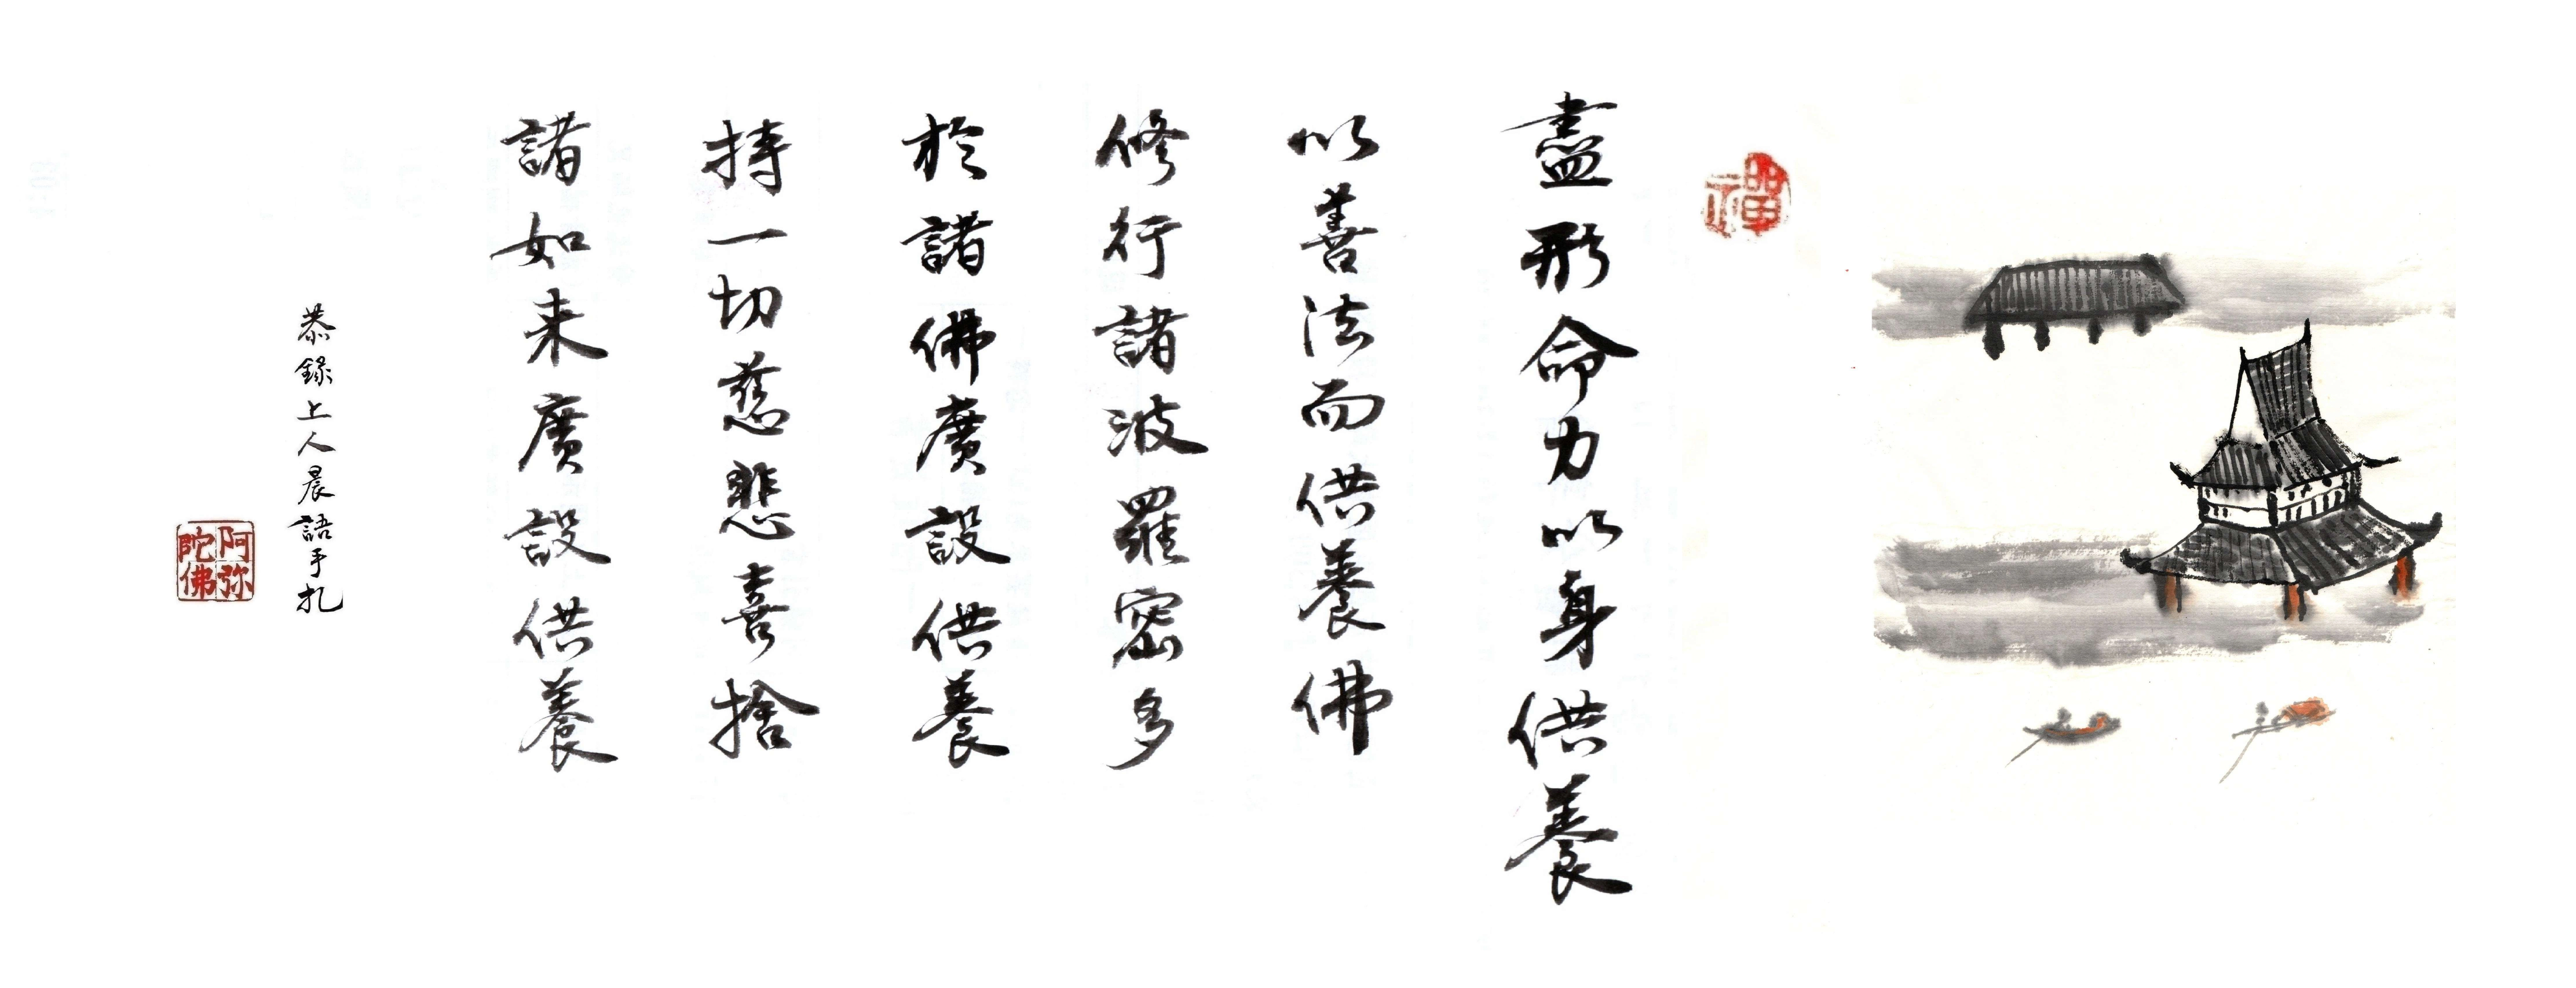 禪
盡形命力以身供養
以善法而供養佛
修行諸波羅密多
於諸佛廣設供養
持一切慈悲喜捨
諸如来廣設供養
恭錄上人晨語手札
阿弥陀佛